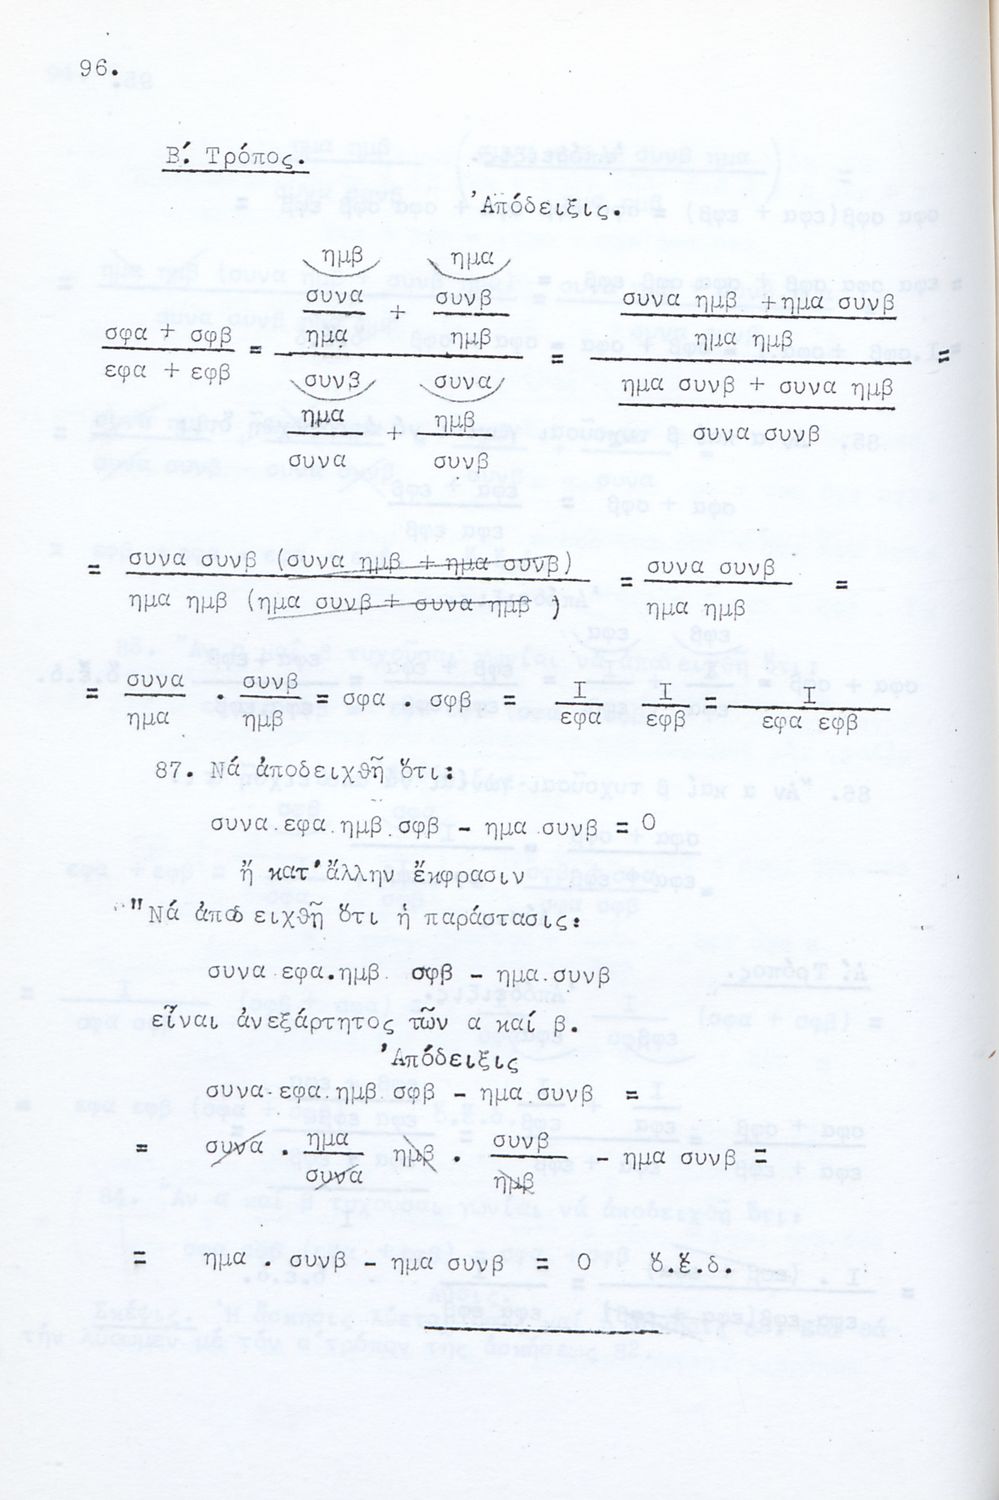 96.
Β΄. Τρόπος.
Ἀπόδειξις.
ημβ ημα
συνα + συνβ συνα ημβ + ημα συνβ
σφα + σφβ ημα ημβ ημα ημβ
= = =
εφα + εφβ συνβ συνα ημα συνβ + συνα ημβ
ημα + ημβ συνα συνβ
συνα συνβ
= συνα συνβ (συνα ημβ + ημα συνβ) = συνα συνβ =
ημα ημβ (ημα συνβ + συνα ημβ ) ημα ημβ
= συνα . συνβ = σφα σφβ = Ι Ι = Ι
ημα ημβ εφα εφβ εφα εφβ
87. Νά ἀποδειχθῆ ὅτι:
συνα.εφα.ημβ.σφβ - ημα.συνβ = 0
ἤ κατ' ἄλλην ἔκφρασιν
"Νά ἀποδειχθῆ ὅτι ἡ παράστασις:
συνα εφα.ημβ. σφβ - ημα.συνβ
εἶναι ἀνεξάρτητος τῶν α καί β.
Ἀπόδειξις
συνα.εφα.ημβ.σφβ - ημα.συνβ =
= συνα . ημα ημβ . συνβ - ημα συνβ =
συνα ημβ
= ημα . συνβ - ημα συνβ = 0 ὅ.ἔ.δ.